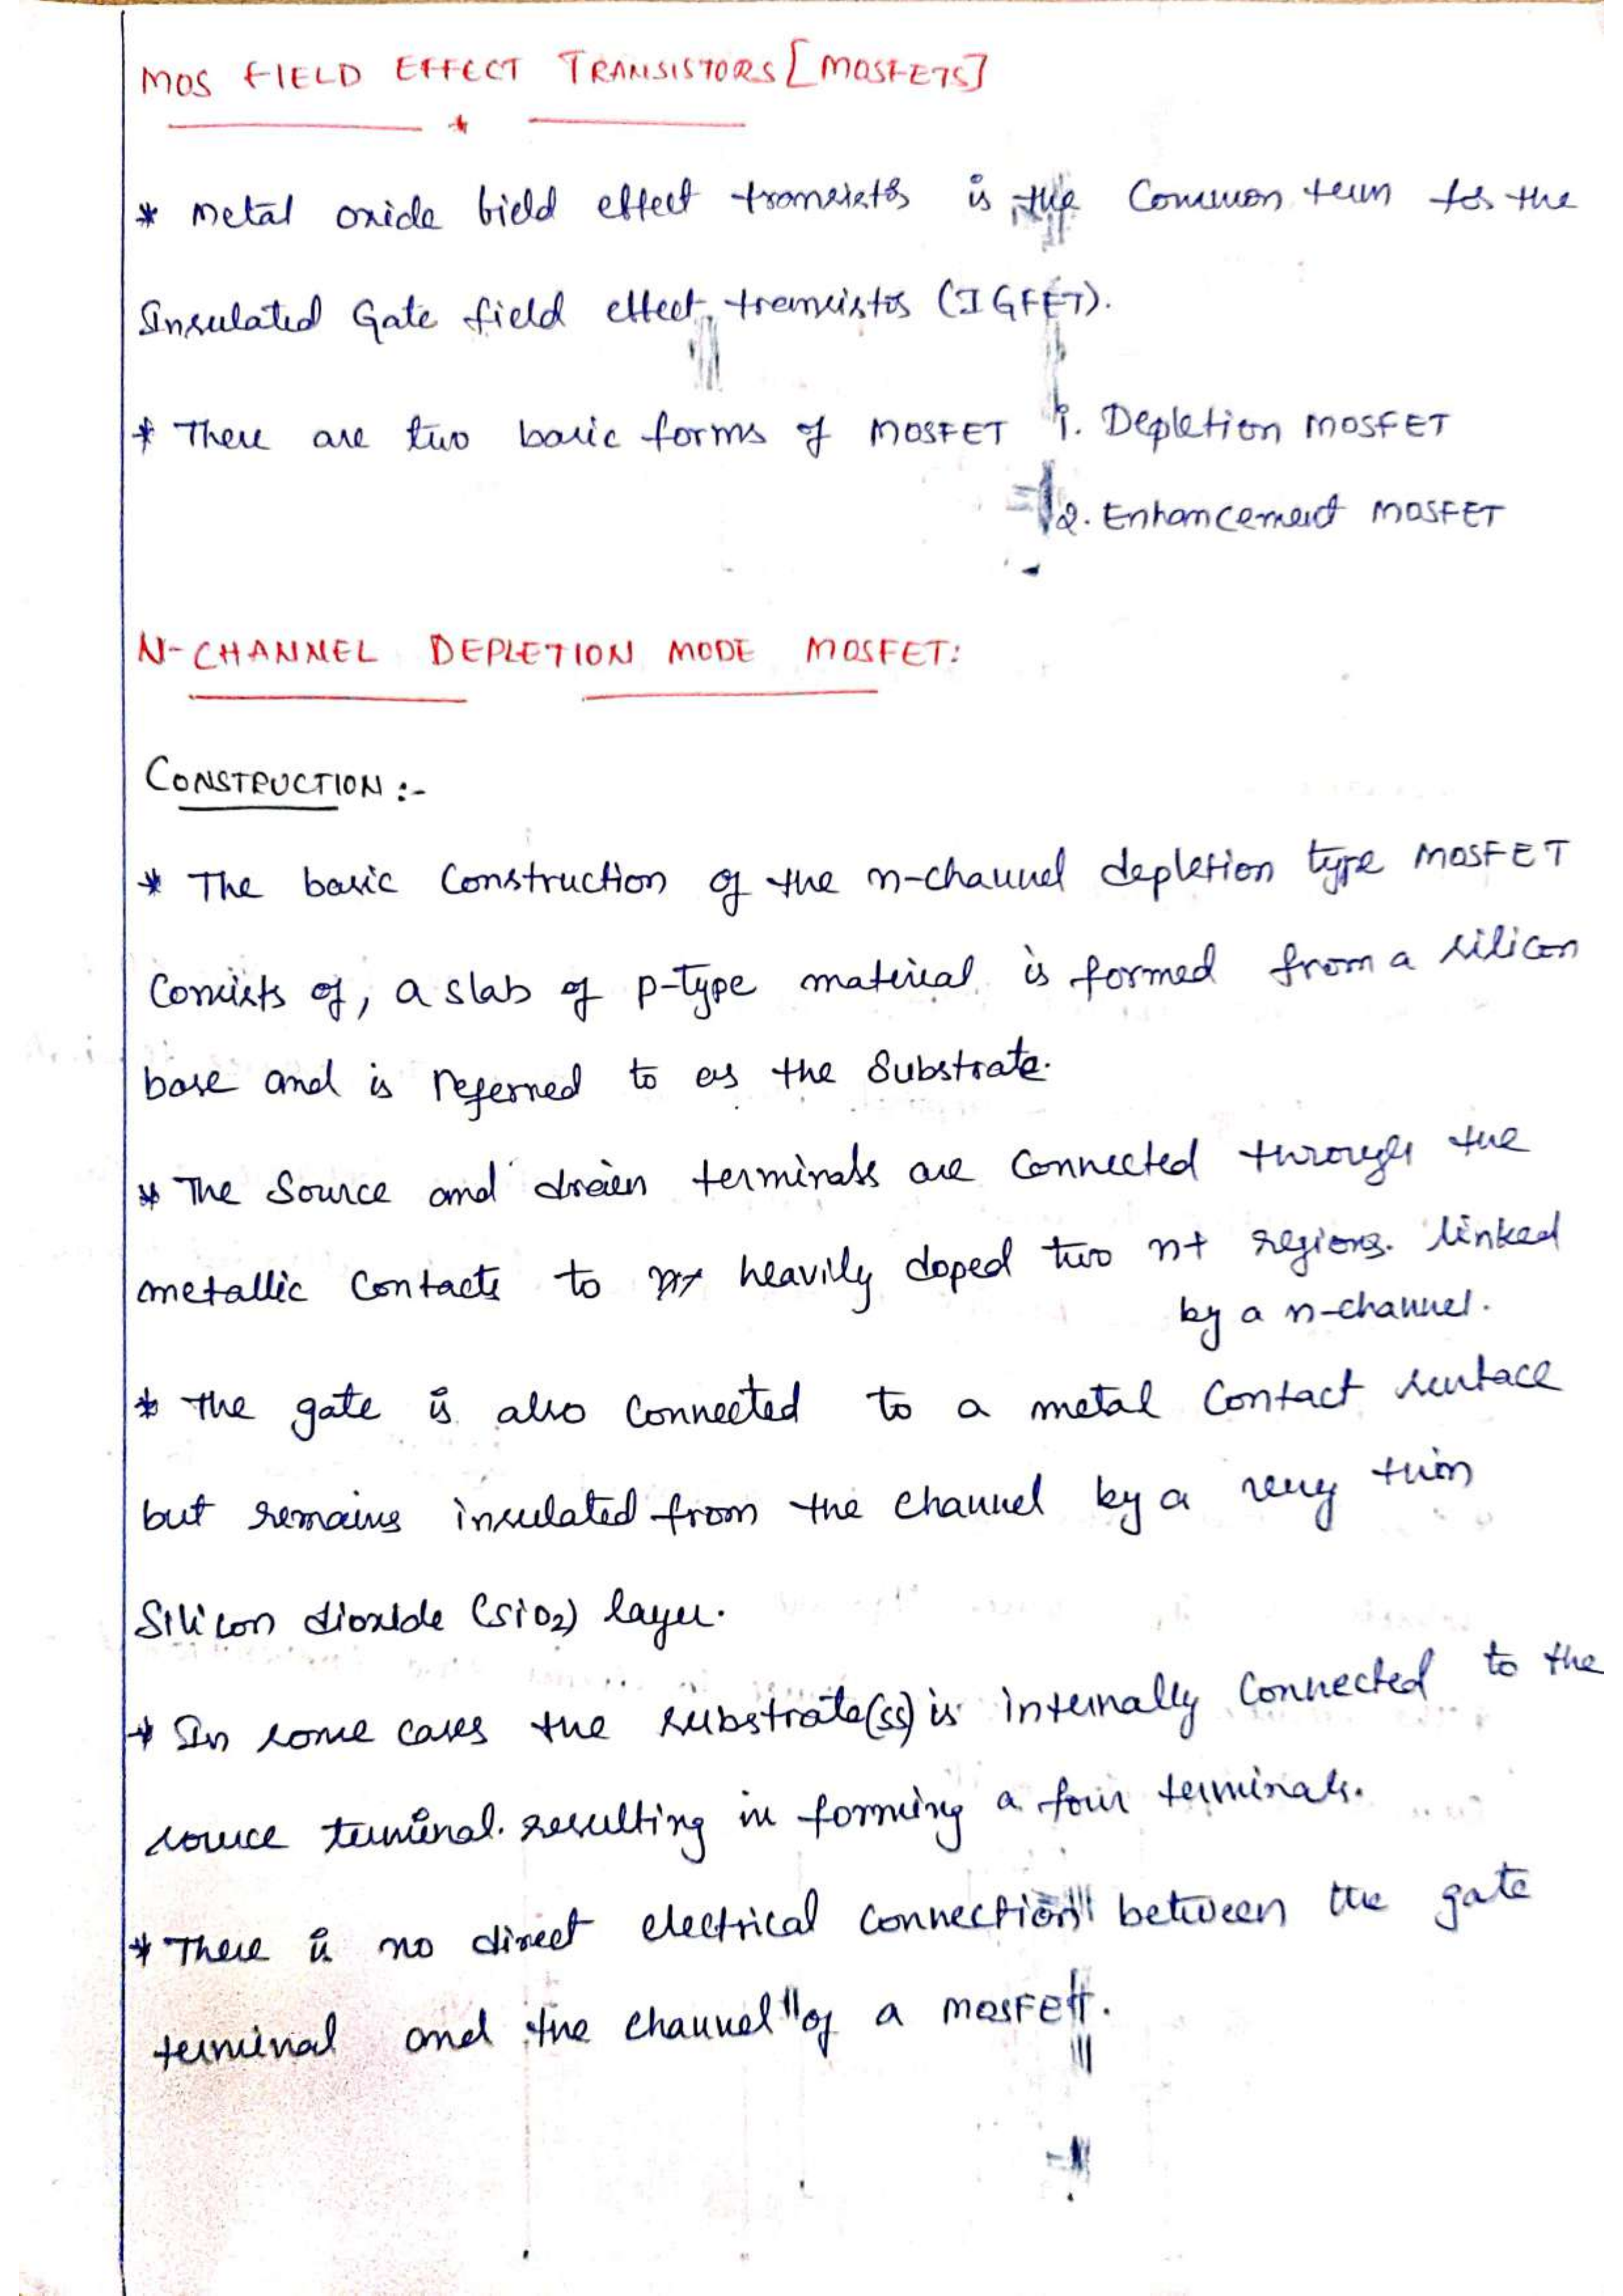 MOS FIELD EFFECT TRANSISTORS [MOSFETS]
* Metal oxide field effect transistor is the Common term for the
Insulated Gate field effect transistor (IGFET).
* There are two basic forms of MOSFET 1. Depletion MOSFET
2. Enhancement MOSFET
N-CHANNEL DEPLETION MODE MOSFET:
CONSTRUCTION :-
* The basic Construction of the n-channel depletion type MOSFET
Consists of, a slab of p-type material is formed from a silicon
base and is referred to as the Substrate.
* The Source and drain terminals are Connected through the
metallic Contacts to heavily doped two n+ regions. linked
by a n-channel.
* The gate is also Connected to a metal Contact surface
but remains insulated from the channel by a very thin
Silicon dioxide (SiO2) layer.
* In some cases the substrate(ss) is internally Connected to the
source terminal. resulting in forming a four terminals.
* There is no direct electrical connection between the gate
terminal and the channel of a MOSFET.